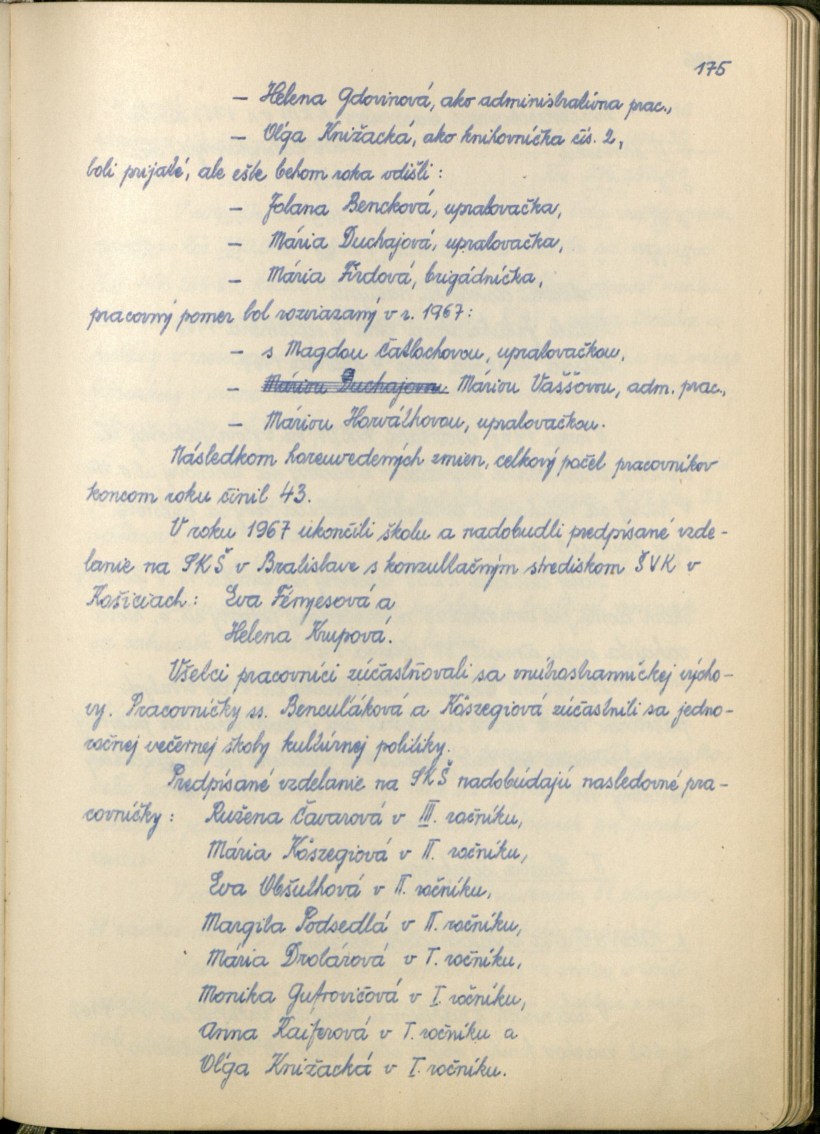 175
– Helena Gdovinová, ako administratívna prac.,
– Oľga Knižacká, ako knihovníčka čís. 2,
boli prijaté, ale ešte behom roka odišli:
– Jolana Bencková, upratovačka,
– Mária Duchajová, upratovačka,
– Mária Firdová, brigádníčka,
pracovný pomer bol rozviazaný v r. 1967:
– s Magdou Čatlochovou, upratovačkou,
– Máriou Duchajovou Máriou Vaššovou, adm. prac.,
– Máriou Horváthovou, upratovačkou.
Následkom horeuvedených zmien, celkový počet pracovníkov
koncom roku činil 43.
V roku 1967 ukončili školu a nadobudli predpísané vzde-
lanie na SKŠ v Bratislave s konzultačným strediskom ŠVK v
Košiciach: Eva Fényesová a
Helena Krupová.
Všetci pracovníci zúčastňovali sa vnútrostranníckej výcho-
vy. Pracovníčky ss. Benculáková a Köszegiová zúčastnili sa jedno-
ročnej večernej školy kultúrnej politiky.
Predpísané vzdelanie na SKŠ nadobúdajú nasledovné pra-
covníčky: Ružena Čavarová v III. ročníku,
Mária Köszegiová v II. ročníku,
Eva Obšuthová v II. ročníku,
Margita Podsedlá v II. ročníku,
Mária Drotárová v I. ročníku,
Monika Gufrovičová v I. ročníku,
Anna Kaiferová v I. ročníku a
Oľga Knižacká v I. ročníku.